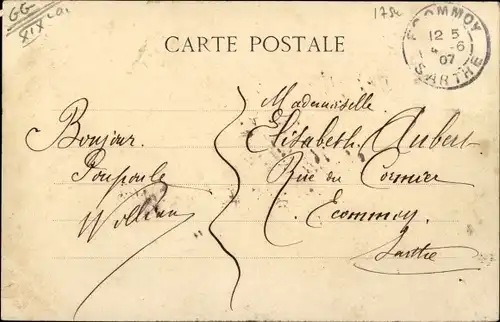 GG
XIX
1750
CARTE POSTALE
ECOMMOY
12 5
4 -6
07
SARTHE
Bonjour
Poupoule
William
Mademoiselle
Elisabeth Aubert
Rue du Cormier
Ecommoy.
Sarthe